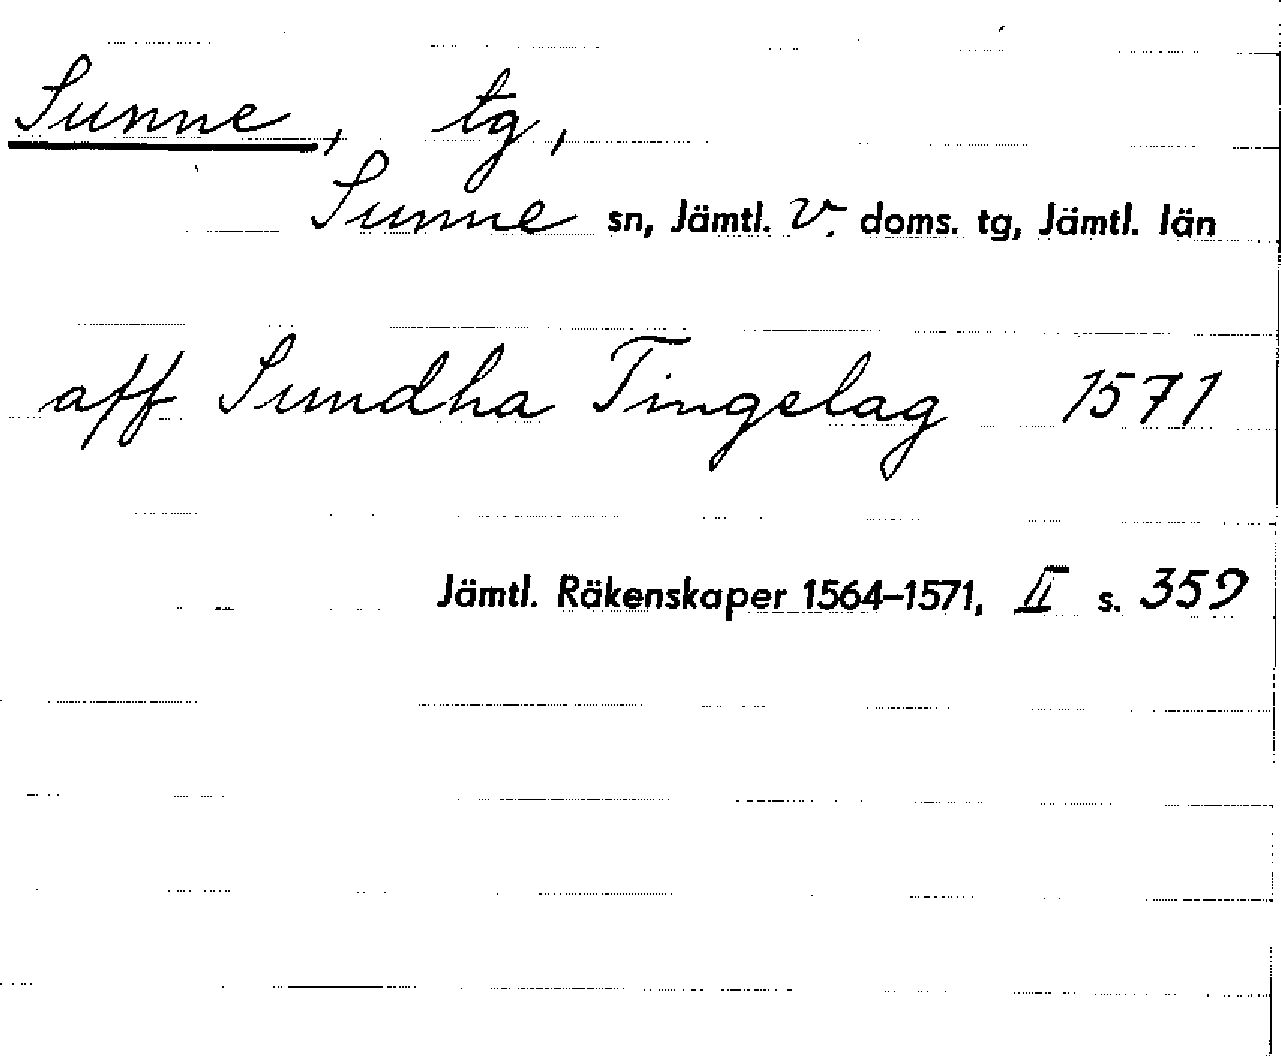 Sunne, tg,
Sunne sn, Jämtl. V. doms. tg, Jämtl. län
aff Sundha Tingelag 1571
Jämtl. Räkenskaper 1564–1571, II s. 359